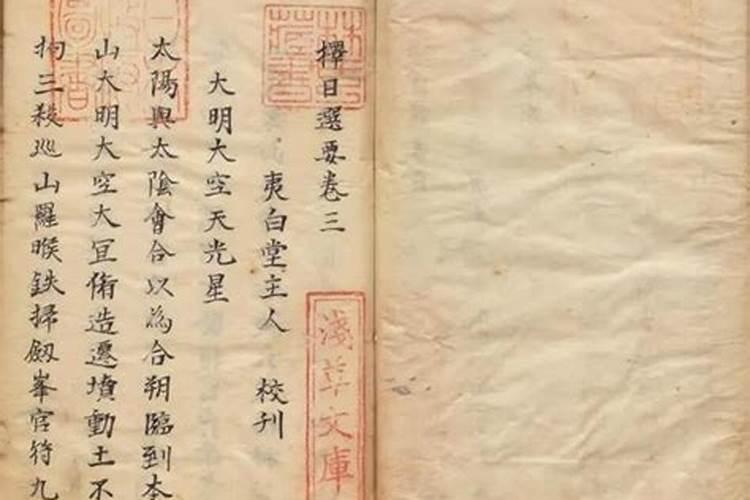 擇日選要卷三
夷白堂主人 校刊
大明大空天光星
太陽與太陰會合以為合朔臨到本
山大明大空大宜俻造遷墳動土不
拘三殺巡山羅睺鉄掃劔峯官符九
淺草文庫